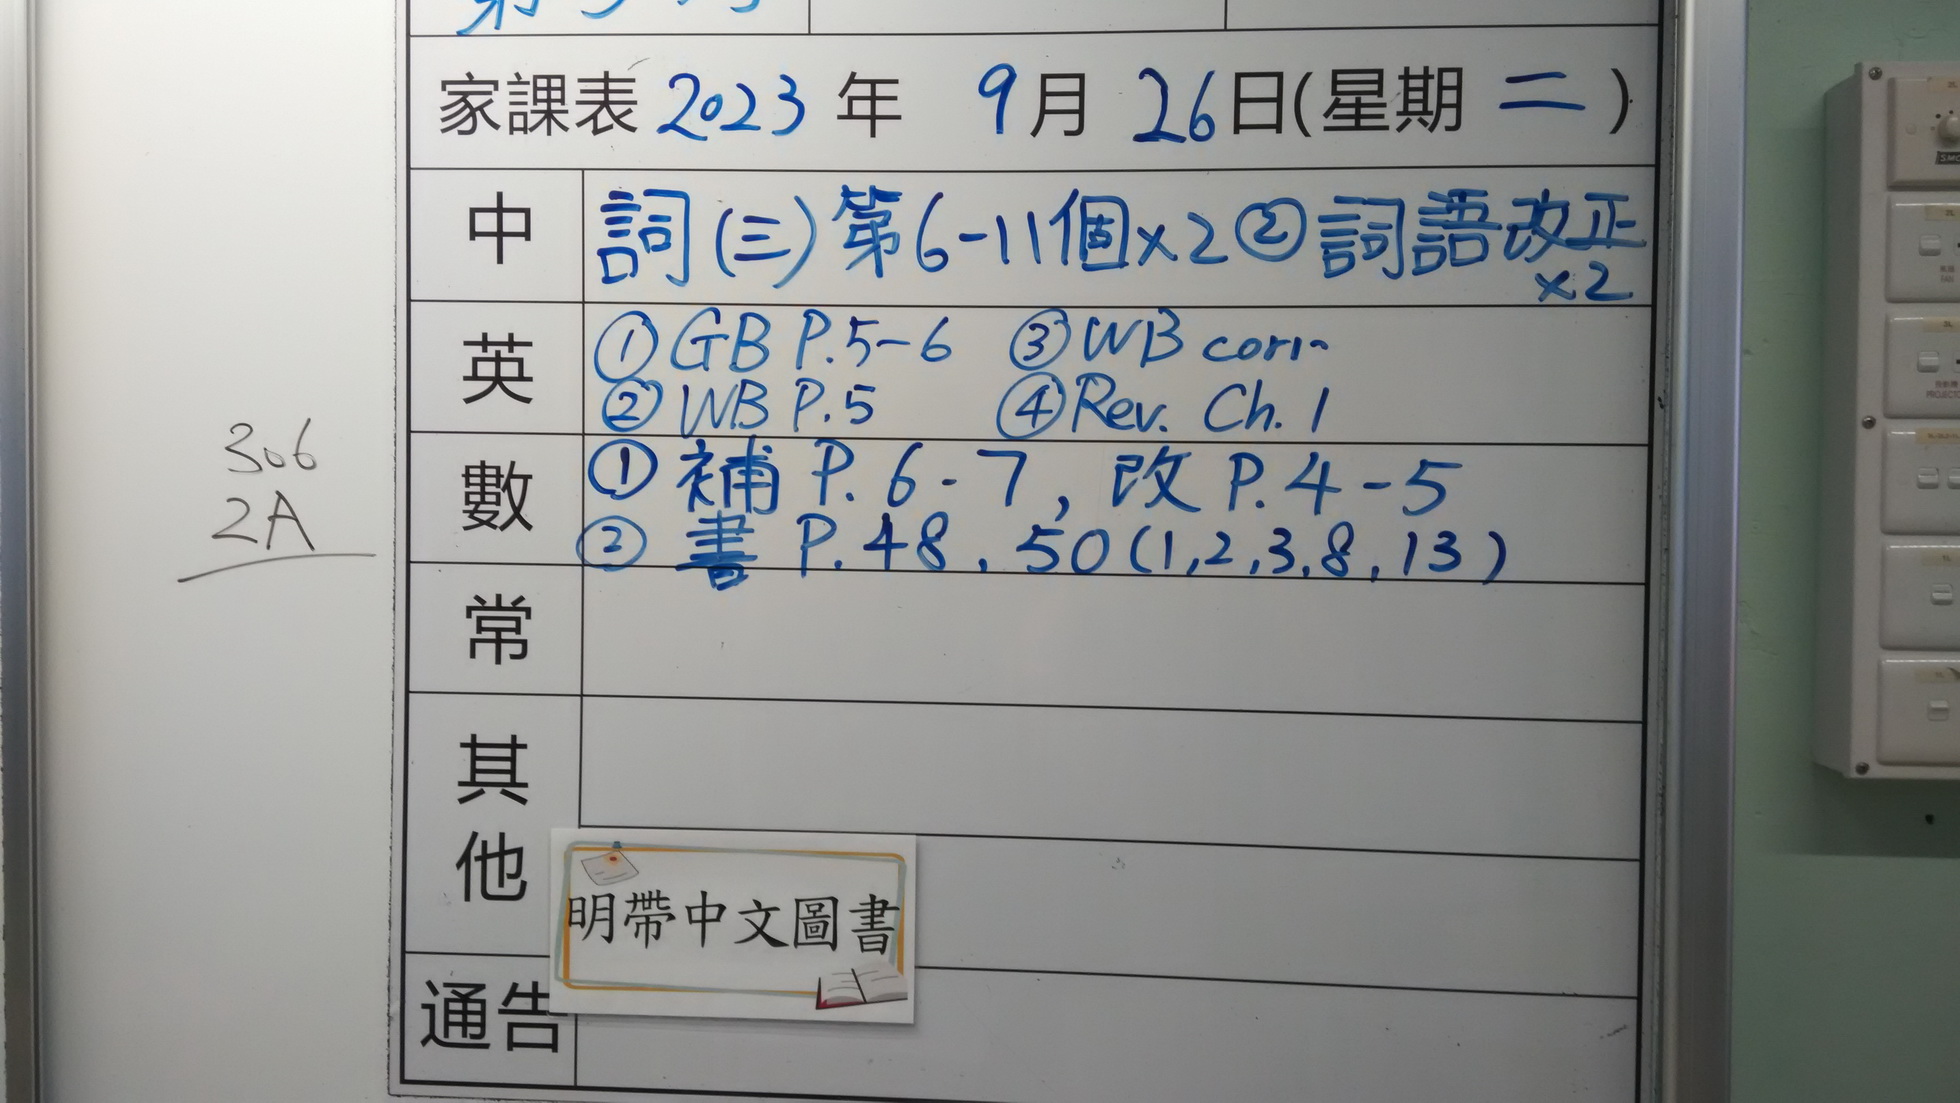 家課表 2023 年 9月 26日(星期 二)
中 詞(三)第6-11個x2 ②詞語改正
x2
英 ① GB P.5-6 ③ WB corr
② WB P.5 ④ Rev. Ch. 1
數 ① 補 P. 6-7, 改 P.4-5
② 書 P.48, 50(1,2,3,8,13)
306
2A
常
其
他
明帶中文圖書
通告